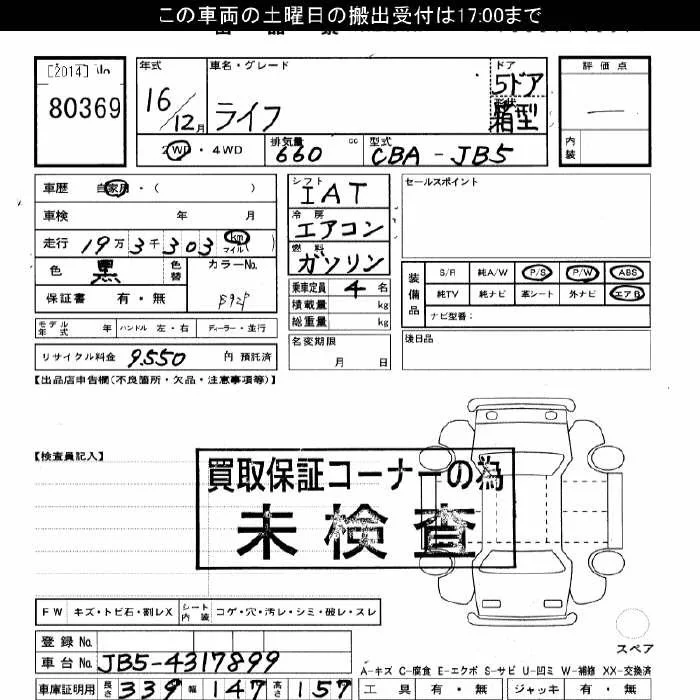 この車両の土曜日の搬出受付は17:00まで
[2014] No
80369
年式 車名・グレード ドア 評価点
16/12月 ライフ 5ドア
形状 箱型
内装
2WD・4WD 排気量 660 cc 型式 CBA-JB5
車歴 自家用・( )
シフト IAT
セールスポイント
車検 年 月
冷房 エアコン
走行 19万3千303 km マイル( )
燃料 ガソリン
色 黒 色替 カラーNo.
装備品 S/R 純A/W P/S P/W ABS
保証書 有・無
乗車定員 4名
純TV 純ナビ 革シート 外ナビ エアB
積載量 kg
ナビ型番:
モデル年式 年 ハンドル 左・右 ディーラー・並行
総重量 kg
リサイクル料金 9.550 円 預託済
名変期限 月 日
後日品
【出品店申告欄(不良箇所・欠品・注意事項等)】
【検査員記入】
買取保証コーナーの為
未検査
FW キズ・トビ石・割レX シート内装 コゲ・穴・汚レ・シミ・破レ・スレ
登録No.
スペア
車台No. JB5-4317899
A-キズ C-腐食 E-エクボ S-サビ U-凹ミ W-補修 XX-交換済
車庫証明用 長さ 339 幅 147 高さ 157 工具 有・無 ジャッキ 有・無